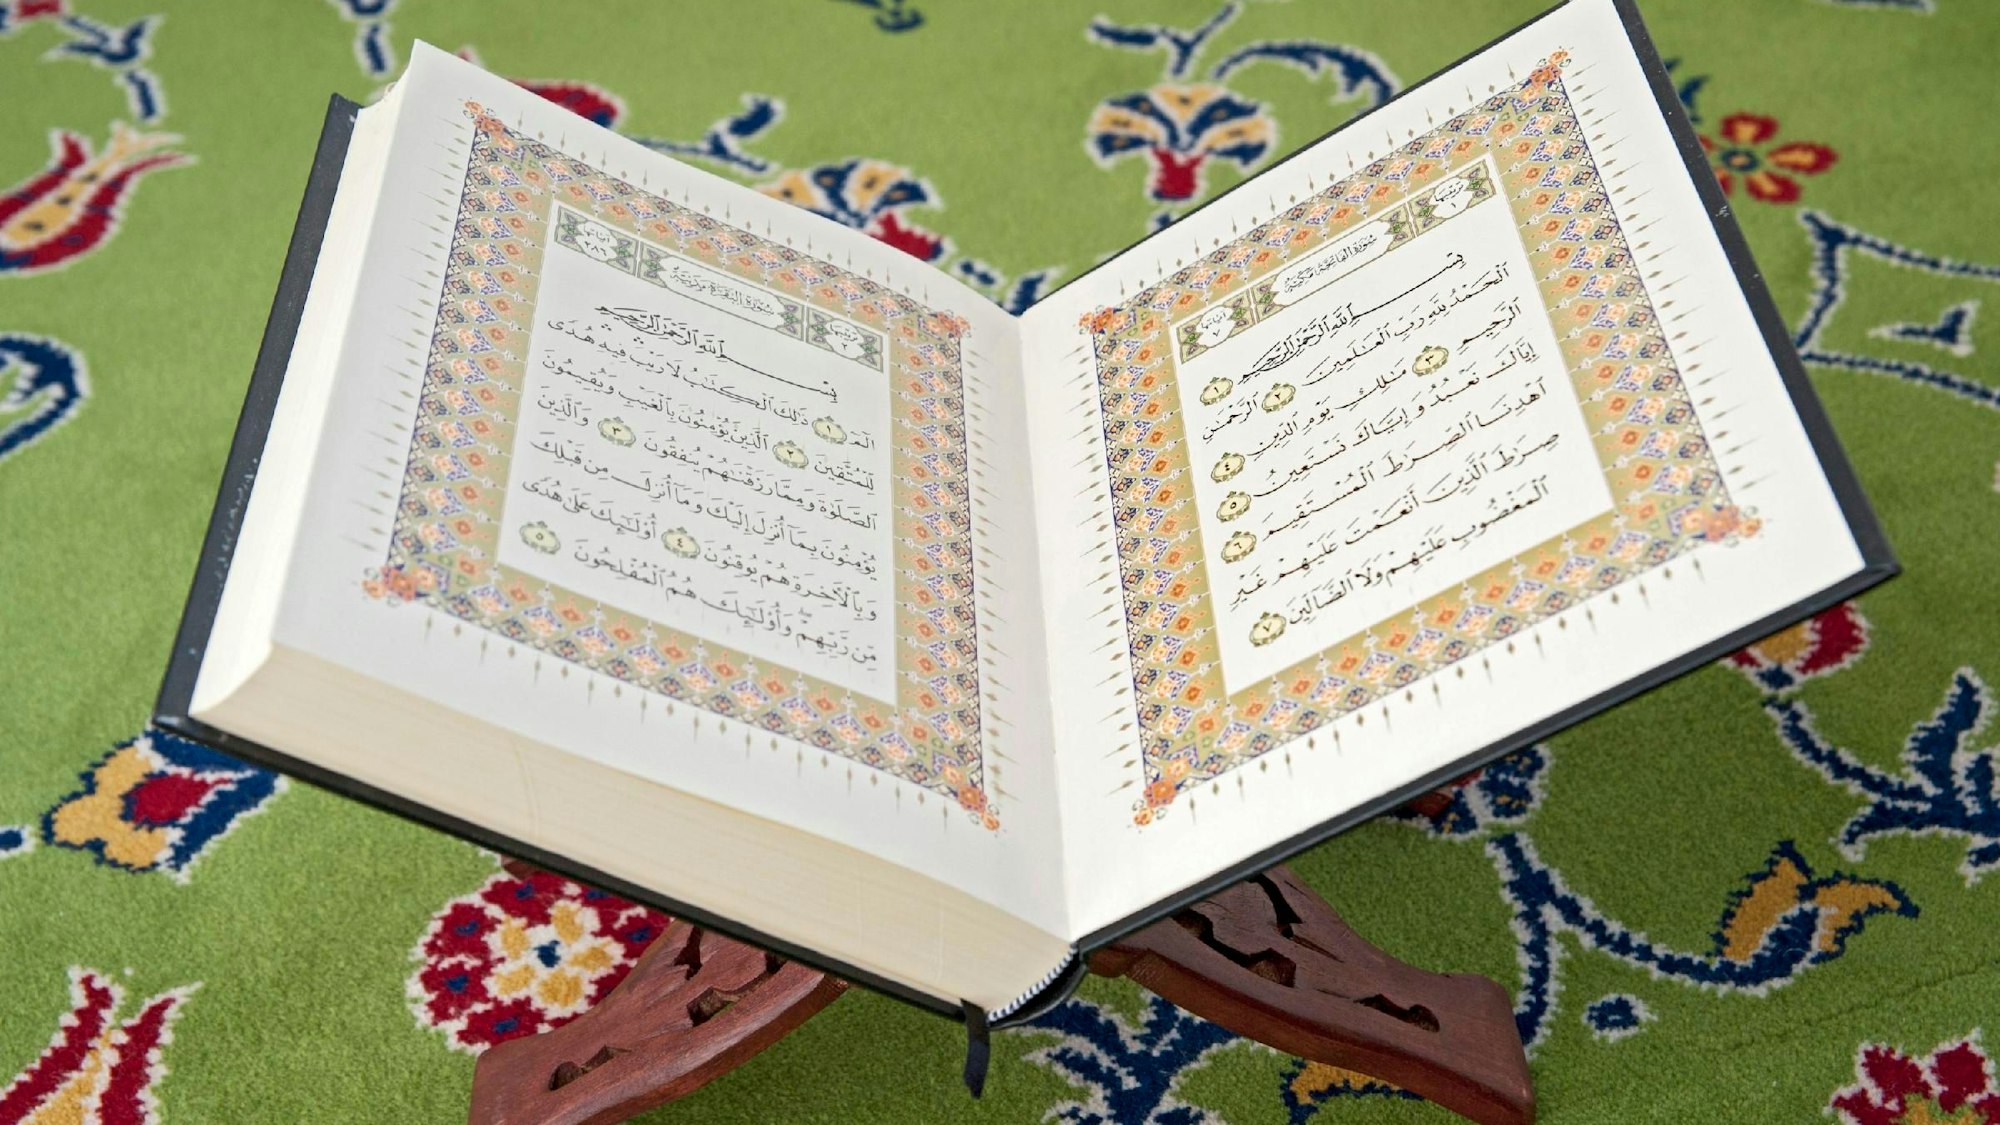 ترتيبها ١ سُورَةُ الفَاتِحَةِ مَكِّيَّة آياتها ٧
بِسْمِ ٱللَّهِ ٱلرَّحْمَٰنِ ٱلرَّحِيمِ ١
ٱلْحَمْدُ لِلَّهِ رَبِّ ٱلْعَٰلَمِينَ ٢ ٱلرَّحْمَٰنِ
ٱلرَّحِيمِ ٣ مَٰلِكِ يَوْمِ ٱلدِّينِ ٤
إِيَّاكَ نَعْبُدُ وَإِيَّاكَ نَسْتَعِينُ ٥
ٱهْدِنَا ٱلصِّرَٰطَ ٱلْمُسْتَقِيمَ ٦
صِرَٰطَ ٱلَّذِينَ أَنْعَمْتَ عَلَيْهِمْ غَيْرِ
ٱلْمَغْضُوبِ عَلَيْهِمْ وَلَا ٱلضَّآلِّينَ ٧
ترتيبها ٢ سُورَةُ البَقَرَةِ مَدَنِيَّة آياتها ٢٨٦
بِسْمِ ٱللَّهِ ٱلرَّحْمَٰنِ ٱلرَّحِيمِ
الٓمٓ ١ ذَٰلِكَ ٱلْكِتَٰبُ لَا رَيْبَ ۛ فِيهِ ۛ هُدًى
لِّلْمُتَّقِينَ ٢ ٱلَّذِينَ يُؤْمِنُونَ بِٱلْغَيْبِ وَيُقِيمُونَ
ٱلصَّلَوٰةَ وَمِمَّا رَزَقْنَٰهُمْ يُنفِقُونَ ٣ وَٱلَّذِينَ
يُؤْمِنُونَ بِمَآ أُنزِلَ إِلَيْكَ وَمَآ أُنزِلَ مِن قَبْلِكَ
وَبِٱلْأَخِرَةِ هُمْ يُوقِنُونَ ٤ أُو۟لَٰٓئِكَ عَلَىٰ هُدًى
مِّن رَّبِّهِمْ ۖ وَأُو۟لَٰٓئِكَ هُمُ ٱلْمُفْلِحُونَ ٥